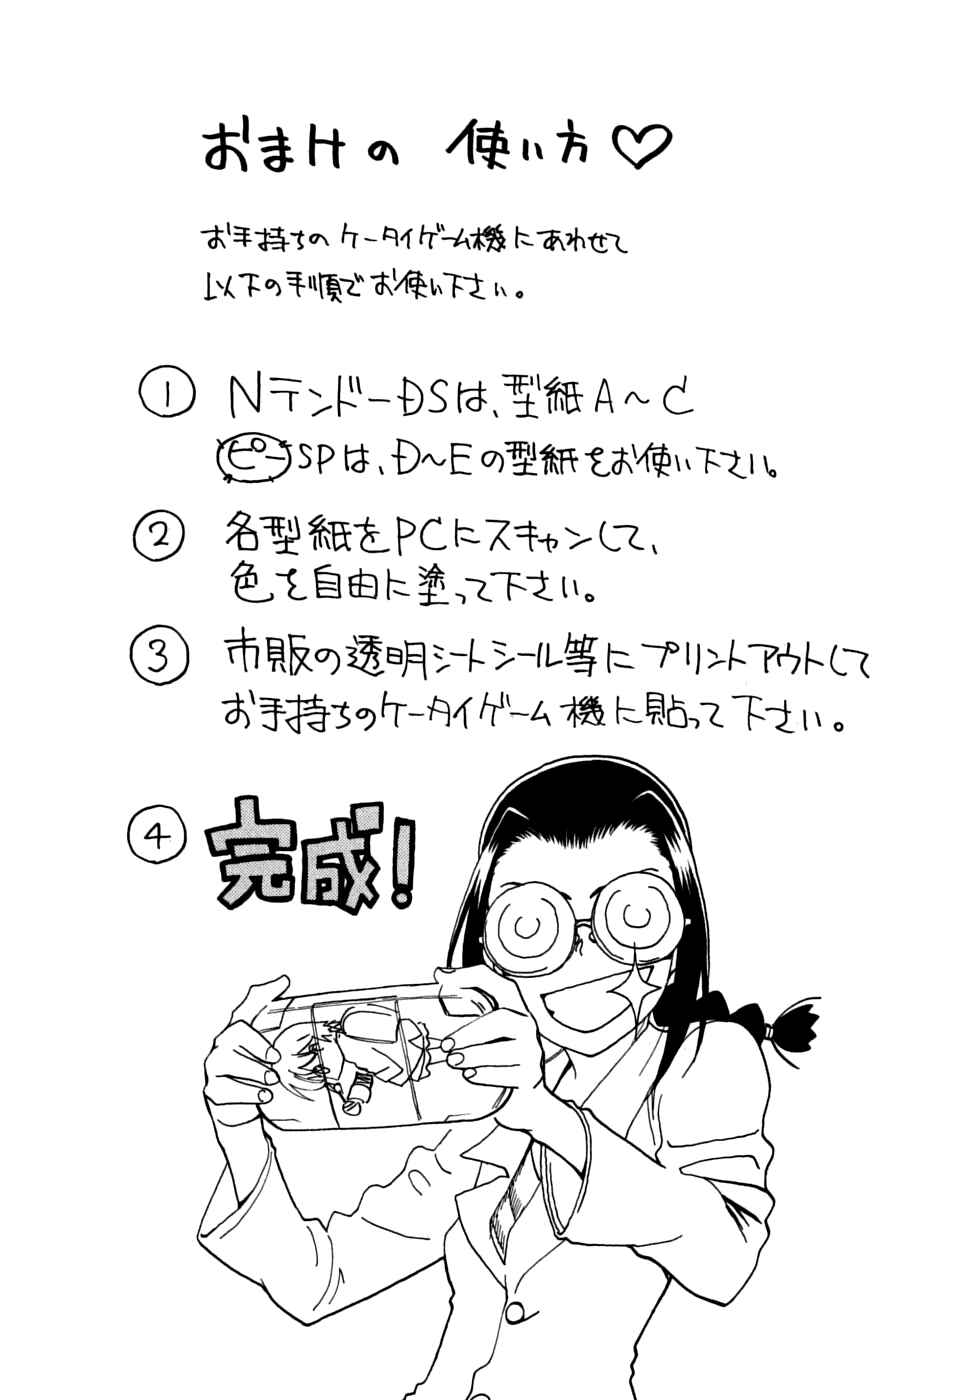 おまけの 使い方♡
お手持ちのケータイゲーム機にあわせて
以下の手順でお使い下さい。
① NテンドーDSは、型紙A～C
ピーSPは、D～Eの型紙をお使い下さい。
② 各型紙をPCにスキャンして、
色を自由に塗って下さい。
③ 市販の透明シートシール等にプリントアウトして
お手持ちのケータイゲーム機に貼って下さい。
④ 完成!